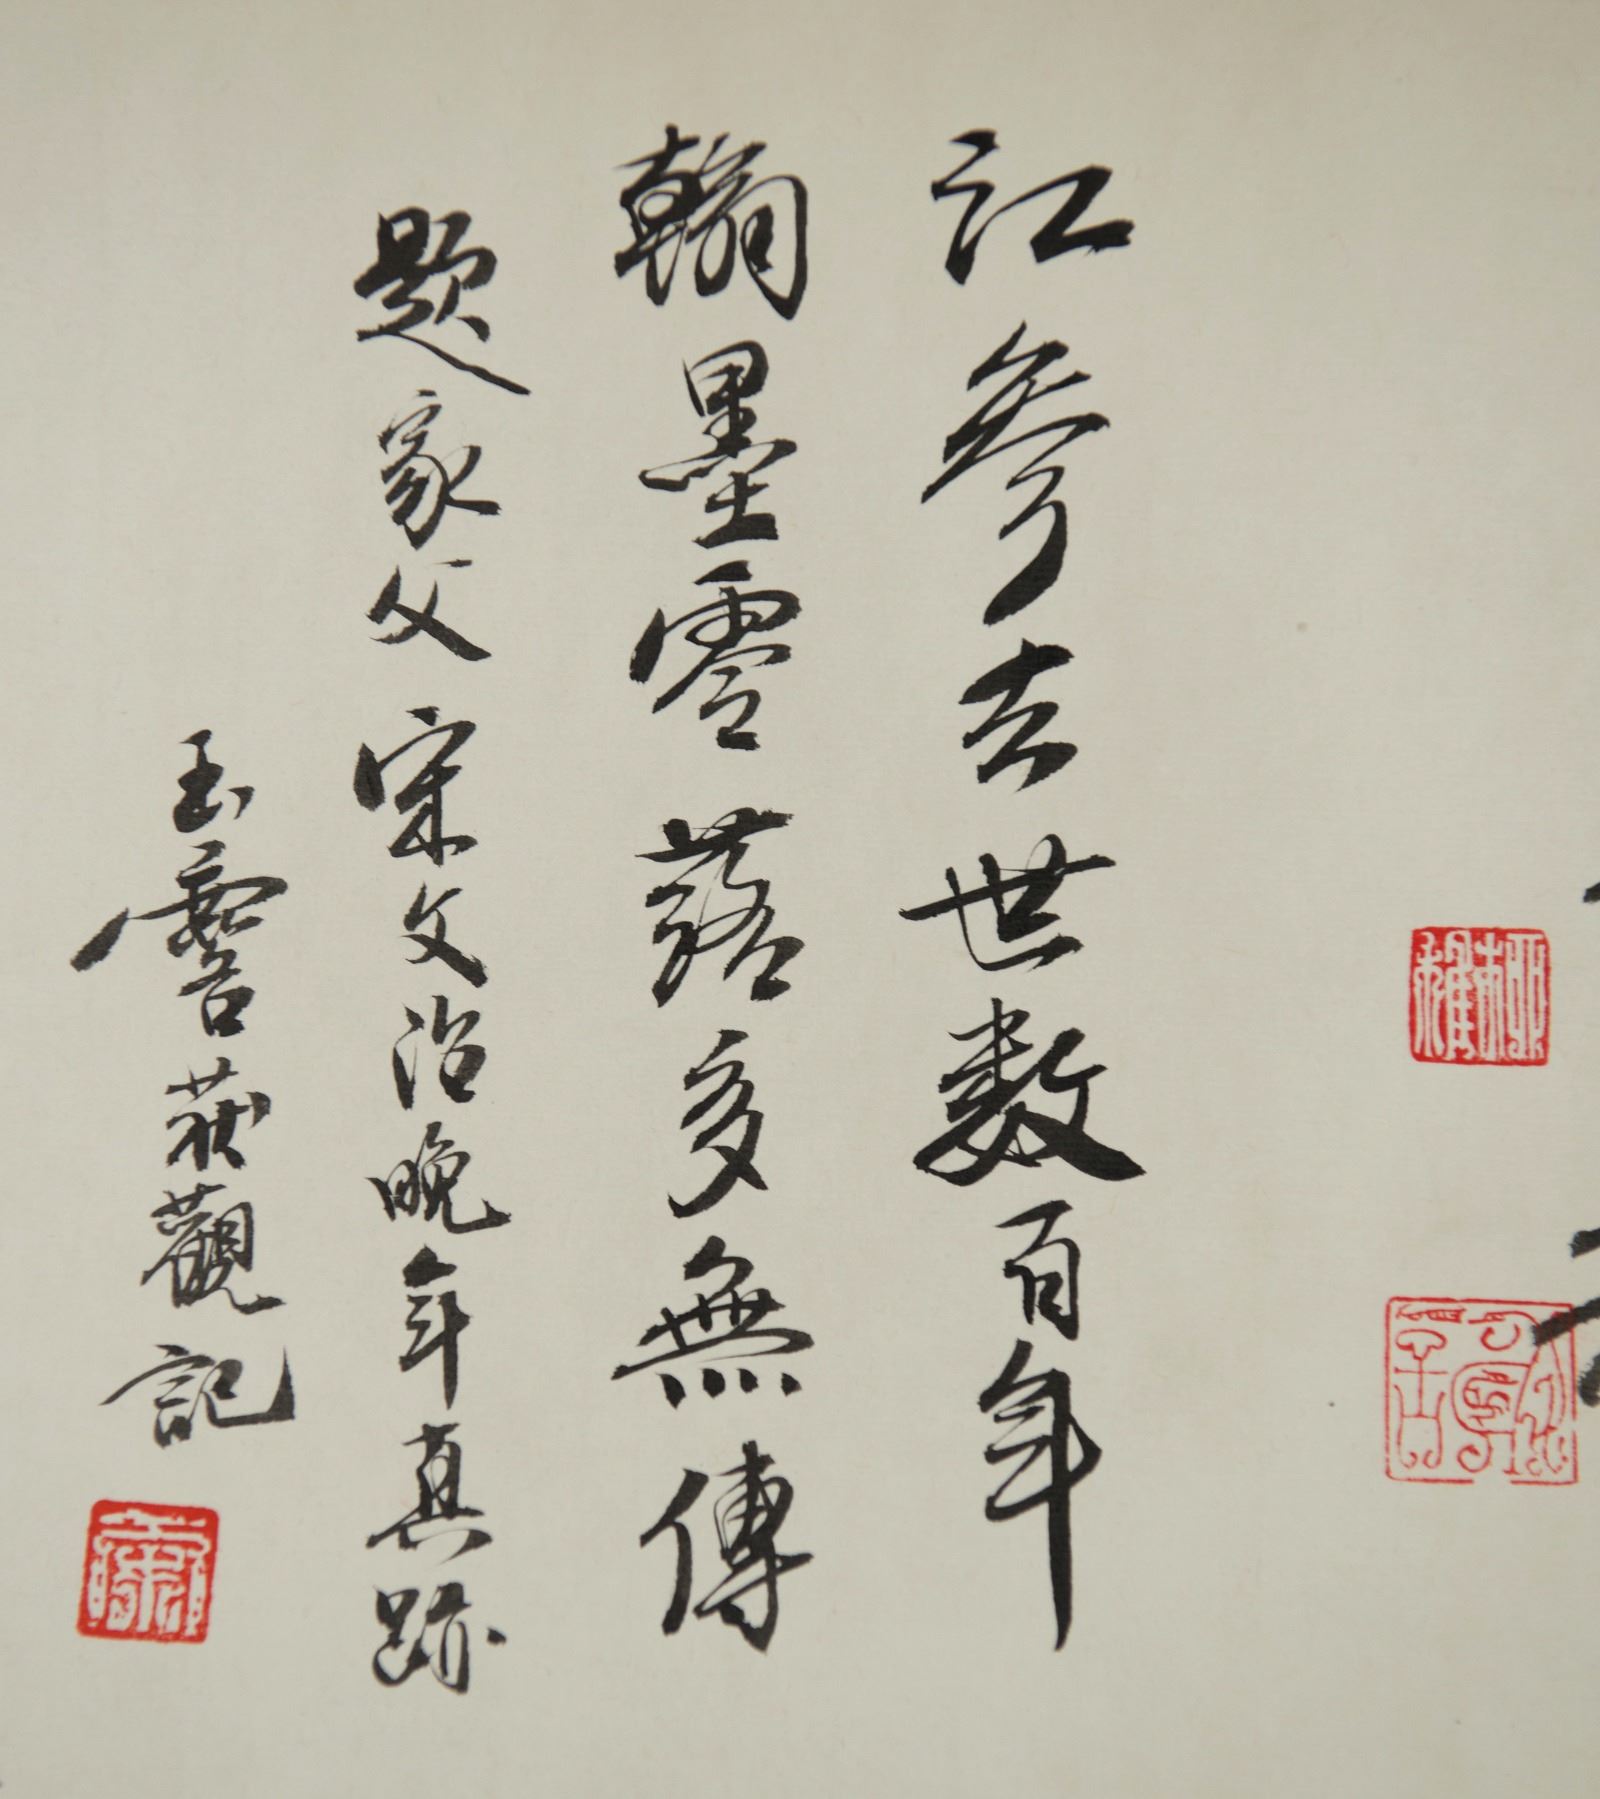 江參去世數百年
翰墨零落多無傳
題家父宋文治晚年真跡
玉麐荻觀記